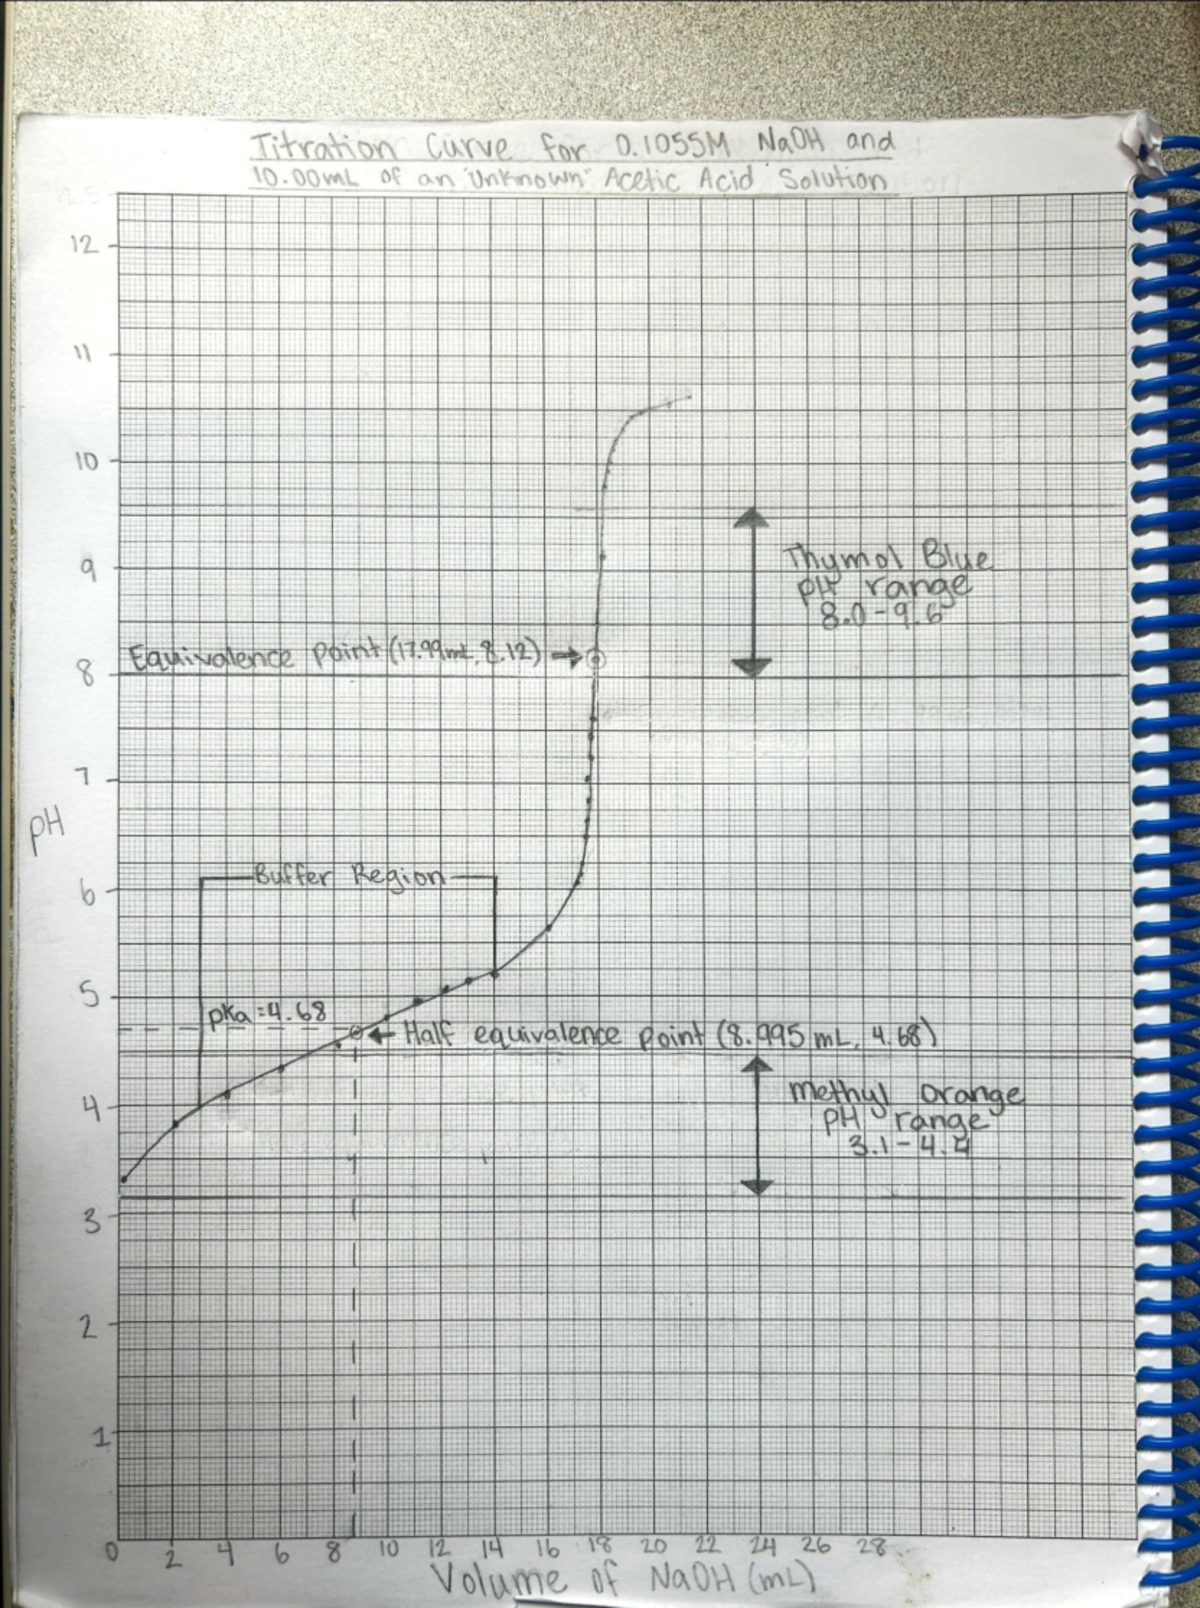 Titration Curve for 0.1055M NaOH and
10.00mL of an "Unknown" Acetic Acid Solution
12
11
10
9
8
7
6
5
4
3
2
1
pH
Thymol Blue
pH range
8.0-9.6
Equivalence point (17.99mL, 8.12)
Buffer Region
pka = 4.68
Half equivalence point (8.995 mL, 4.68)
Methyl Orange
pH range
3.1-4.4
0 2 4 6 8 10 12 14 16 18 20 22 24 26 28
Volume of NaOH (mL)